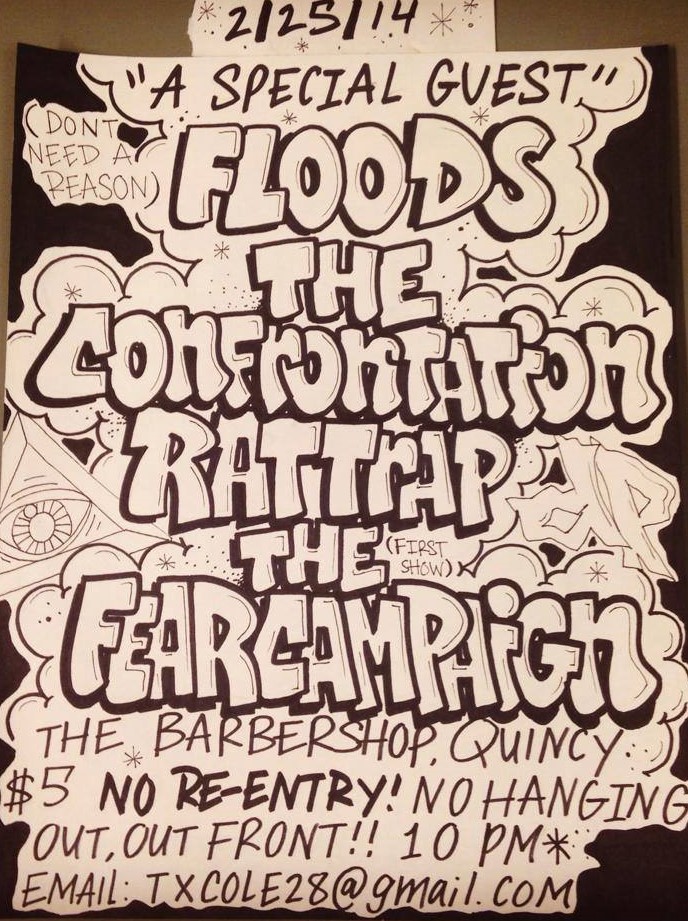 2/25/14
"A SPECIAL GUEST"
(DONT
NEED A
REASON)
FLOODS
THE
CONFrONTATiON
RATTrAP
THE
(FIRST
SHOW)
FEAR CAMPAiGN
THE BARBERSHOP, QUINCY
$5 NO RE-ENTRY! NO HANGING
OUT, OUT FRONT!! 10 PM*
EMAIL: TXCOLE28@gmail.COM